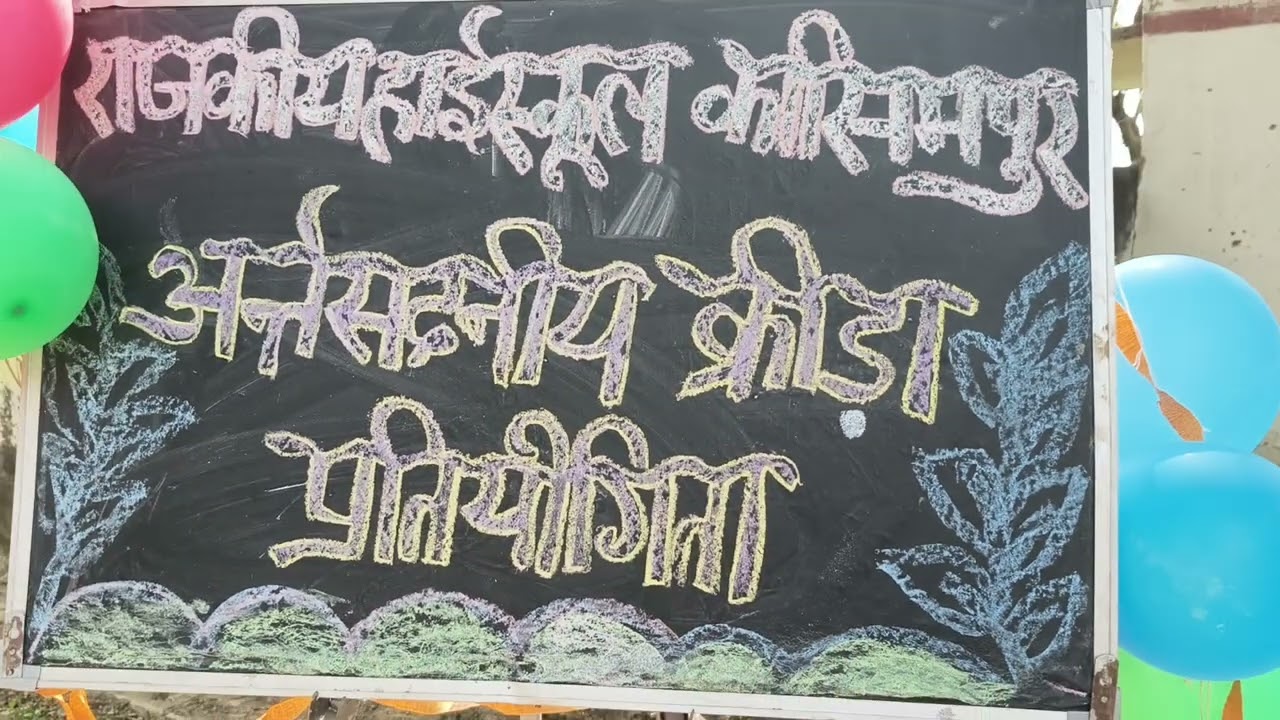 राजकीय हाईस्कूल कासिमपुर
अर्न्तसदनीय क्रीड़ा
प्रतियोगिता